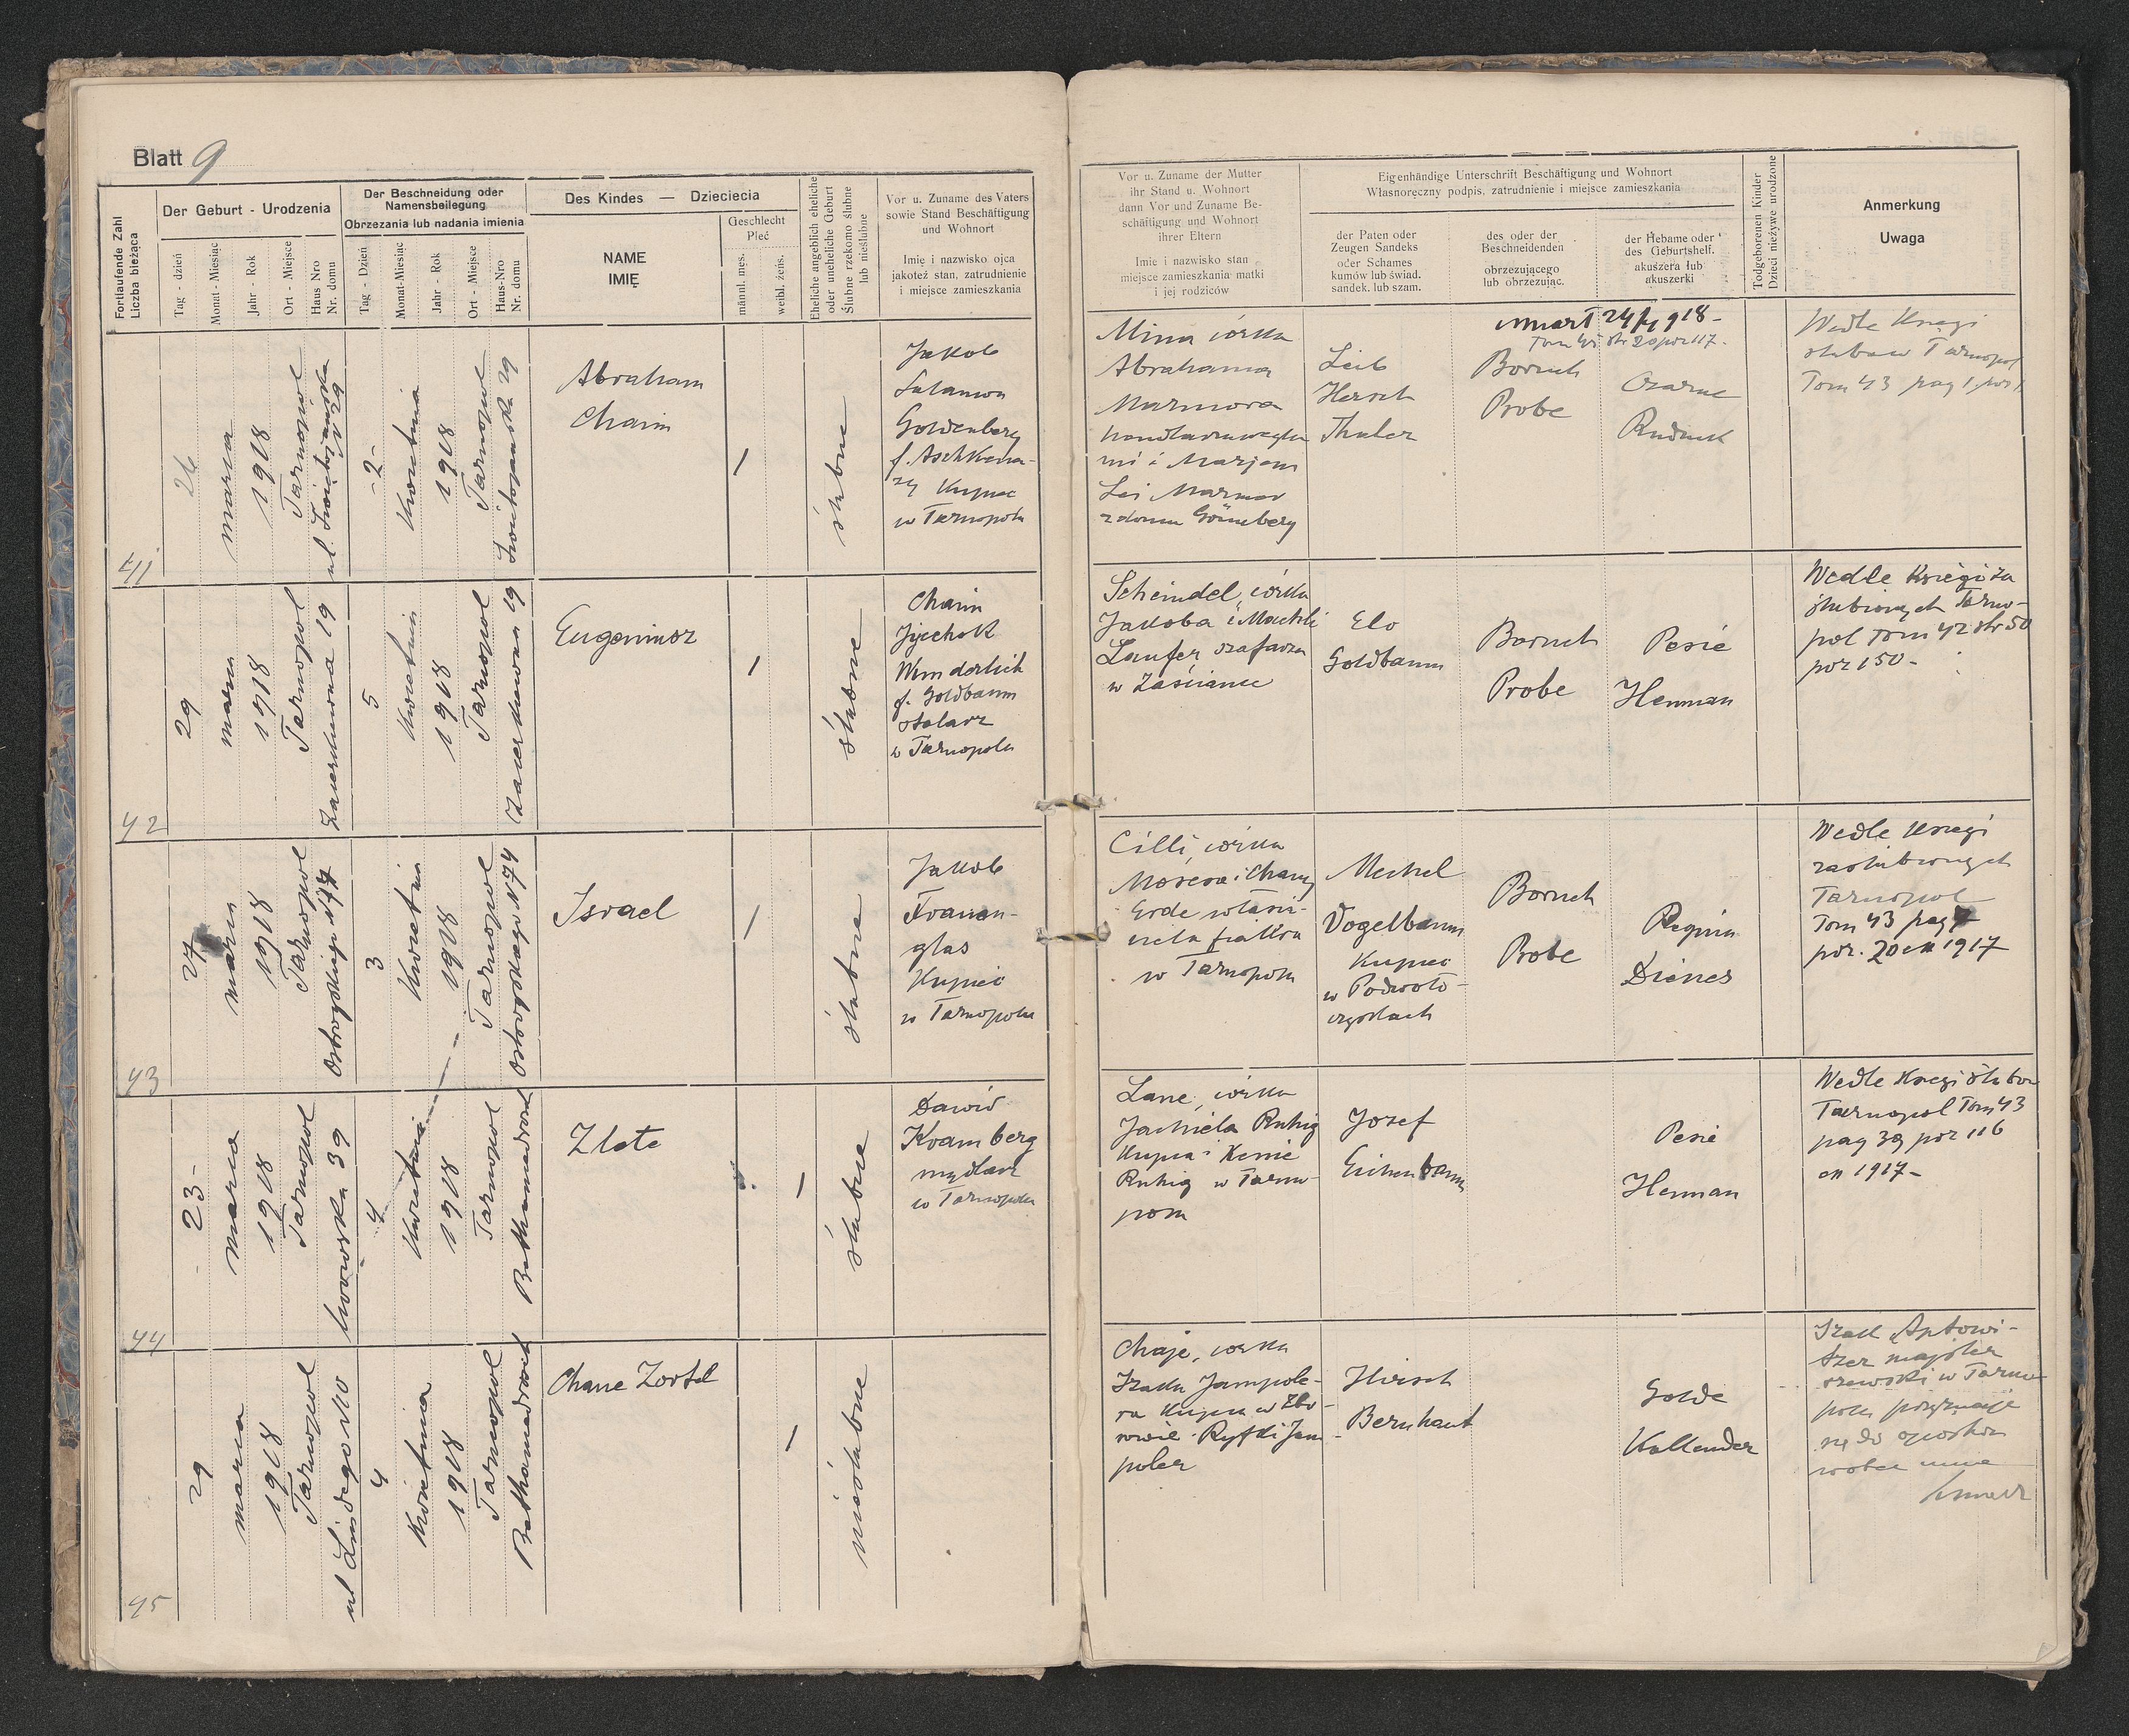 Blatt 9
Fortlaufende Zahl
Liczba bieżąca
Der Geburt - Urodzenia
Tag - dzień
Monat - Miesiąc
Jahr - Rok
Ort - Miejsce
Haus Nro
Nr. domu
Der Beschneidung oder
Namensbeilegung
Obrzezania lub nadania imienia
Tag - Dzień
Monat-Miesiąc
Jahr - Rok
Ort - Miejsce
Haus-Nro
Nr. domu
Des Kindes — Dzieciecia
NAME
IMIĘ
Geschlecht
Płeć
männl. męs.
weibl. żeńs.
Eheliche angeblich eheliche
oder uneheliche Geburt
Ślubne rzekomo ślubne
lub nieślubne
Vor u. Zuname des Vaters
sowie Stand Beschäftigung
und Wohnort
Imię i nazwisko ojca
jakoteż stan, zatrudnienie
i miejsce zamieszkania
Vor u. Zuname der Mutter
ihr Stand u. Wohnort
dann Vor und Zuname Be-
schäftigung und Wohnort
ihrer Eltern
Imie i nazwisko stan
miejsce zamieszkania matki
i jej rodziców
Eigenhändige Unterschrift Beschäftigung und Wohnort
Własnoręczny podpis, zatrudnienie i miejsce zamieszkania
der Paten oder
Zeugen Sandeks
oder Schames
kumów lub świad.
sandek. lub szam.
des oder der
Beschneidenden
obrzezującego
lub obrzezując.
der Hebame oder
des Geburtshelf.
akuszera łub
akuszerki
Todgeborenen Kinder
Dzieci nieżywe urodzone
Anmerkung
Uwaga
41
26
marca
1918
Tarnopol
ul. Świętojańska
N 29
2
Kwietnia
1918
Tarnopol
Świętojańska 29
Abraham
Chaim
ślubne
Jakob
Salamon
Goldenberg
f. Aschkena-
zy Kupiec
w Tarnopolu
Mina córka
Abrahama
Marmora
i Marjem
Lei Marmor
z domu Grüneberg
Leib
Hersch
Thaler
umarł 24/4 918-
Tom 45 str 20 poz 117-
Boruch
Probe
Czarne
Rudnik
Wedle Księgi
ślubow Tarnopol
Tom 43 pag 1
42
29
marca
1918
Tarnopol
19
5
Kwietnia
1918
Tarnopol
19
Eugeniusz
ślubne
Chaim
Jzechok
Wunderlich
f. Goldbaum
stolarz
w Tarnopolu
Scheindel, córka
Jakoba i Machli
Laufer, szafarza
w Zaściance
Elo
Goldbaum
Boruch
Probe
Pesie
Herman
Wedle Księgi za
ślubionych Tarno-
pol Tom 42 str 50
poz 150-
43
27
marca
1918
Tarnopol
Ostrogskiego N 74
3
Kwietnia
1918
Tarnopol
Ostrogskiego N 74
Israel
ślubne
Jakob
Frauen-
glas
Kupiec
w Tarnopolu
Cilli, córka
Mosesa i Chany
Erde właści-
ciela fiakra
w Tarnopolu
Mechel
Vogelbaum
Kupiec
w Podwoło-
czyskach
Boruch
Probe
Regina
Dienes
Wedle Księgi
zaślubionych
Tarnopol
Tom 43 pag 7
poz. 20 ex 1917
44
23
marca
1918
Tarnopol
Lwowska 39
4
Kwietnia
1918
Tarnopol
Bethamedrasch
Zlate
ślubne
Dawid
Kramberg
mydlarz
w Tarnopolu
Lane, córka
Jachiela Ruhig
Kupca i Kenie
Ruhig w Tarno-
polu
Josef
Eichenbaum
Pesie
Herman
Wedle Księgi ślubow
Tarnopol Tom 43
pag 39 poz 116
ex 1917-
45
29
marca
1918
Tarnopol
4
Kwietnia
1918
Tarnopol
Bethamedrasch
Chane Zortel
nieślubne
Chaje, córka
Izaka Jampole-
ra Kupca w Zbo-
rowie i Ryfki Jam
poler
Hirsch
Bernhaut
Golde
Kallender
Izak Aptowi-
tzer majster
szewski w Tarno
polu przyznaje
się do ojcostwa
wobec mnie